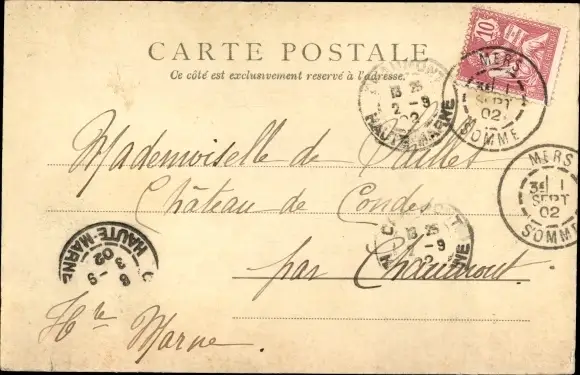 CARTE POSTALE
Ce côté est exclusivement reservé à l'adresse.
10
MERS
3E 1
SEPT
02
SOMME
13 25
2 - 9
02
HAUTE-MARNE
MERS
3E 1
SEPT
02
SOMME
Mademoiselle de
Château de Condes
13 25
2 - 9
par Chaumont.
Hte Marne.
HAUTE-MARNE
3 - 9
02